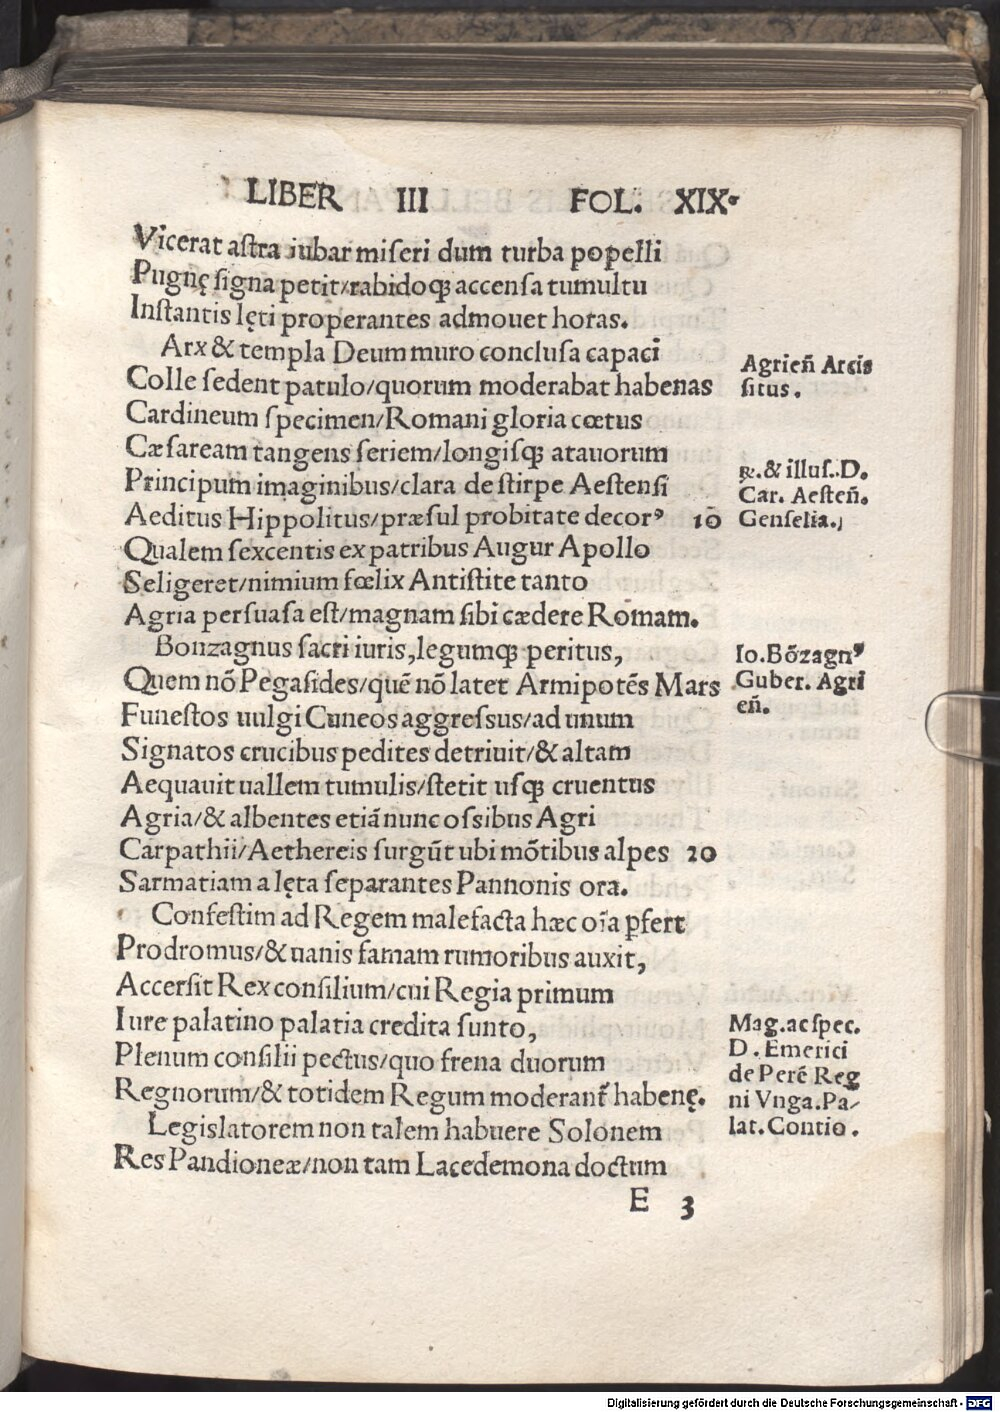 LIBER III FOL. XIX.
Vicerat aſtra iubar miſeri dum turba popelli
Pugnę ſigna petit/rabidoqꝫ accenſa tumultu
Inſtantis lęti properantes admouet horas.
Arx & templa Deum muro concluſa capaci
Colle ſedent patulo/quorum moderabat habenas
Agrieñ Arcis
ſitus.
Cardineum ſpecimen/Romani gloria cœtus
Cæſaream tangens ſeriem/longiſqꝫ atauorum
Principum imaginibus/clara de ſtirpe Aeſtenſi
Aeditus Hippolitus/præſul probitate decorꝰ 10
& illuſ.D.
Car. Aeſteñ.
Genſelia.
Qualem ſexcentis ex patribus Augur Apollo
Seligeret/nimium fœlix Antiſtite tanto
Agria perſuaſa eſt/magnam ſibi cædere Romam.
Bonzagnus ſacri iuris,legumqꝫ peritus,
Quem nõ Pegaſides/quẽ nõ latet Armipotẽs Mars
Funeſtos uulgi Cuneos aggreſsus/ad unum
Io.Bõzagnꝰ
Guber. Agri
eñ.
Signatos crucibus pedites detriuit/& altam
Aequauit uallem tumulis/ſtetit uſqꝫ cruentus
Agria/& albentes etiã nunc oſsibus Agri
Carpathii/Aethereis ſurgũt ubi mõtibus alpes 20
Sarmatiam a lęta ſeparantes Pannonis ora.
Confeſtim ad Regem malefacta hæc oĩa ꝑfert
Prodromus/& uanis famam rumoribus auxit,
Accerſit Rex conſilium/cui Regia primum
Iure palatino palatia credita ſunto,
Plenum conſilii pectus/quo frena duorum
Regnorum/& totidem Regum moderant᷑ habenę.
Mag.ac ſpec.
D. Emerici
de Perẽ Reg
ni Vnga.Pa/
lat.Contio.
Legislatorem non talem habuere Solonem
Res Pandioneæ/non tam Lacedemona doctum
E 3
Digitalisierung gefördert durch die Deutsche Forschungsgemeinschaft - DFG